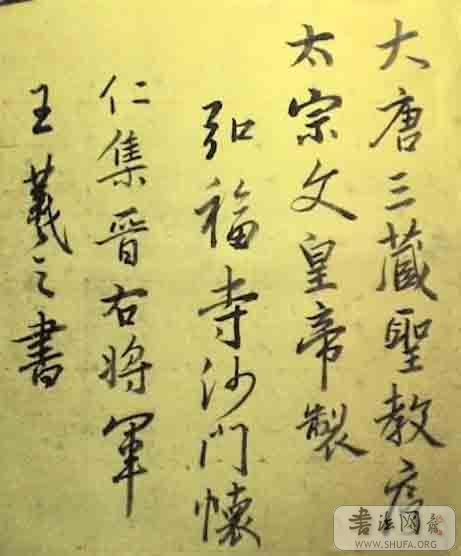 大唐三藏聖教序
太宗文皇帝製
弘福寺沙門懷
仁集晉右將軍
王羲之書
書法网
WWW.SHUFA.ORG